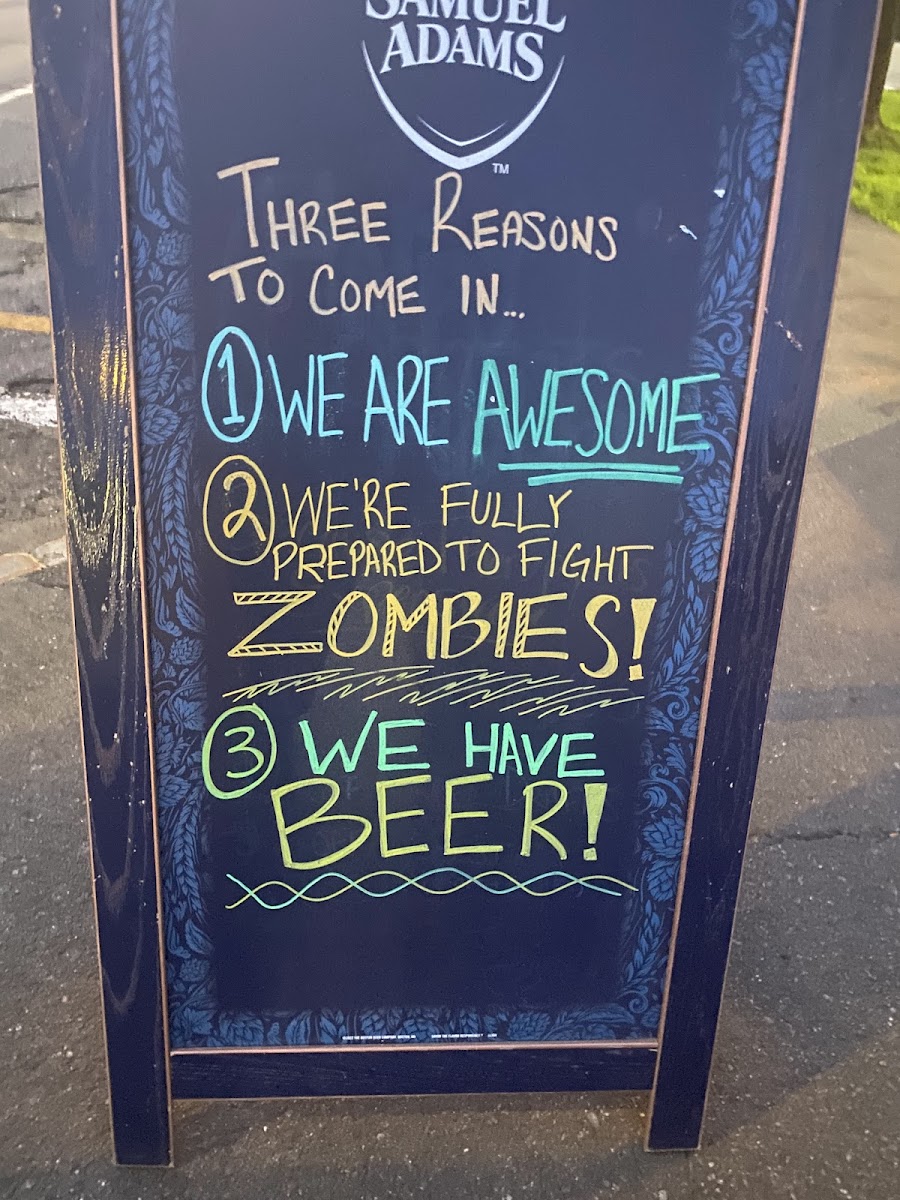 SAMUEL
ADAMS
TM
THREE REASONS
TO COME IN...
1 WE ARE AWESOME
2 WE'RE FULLY
PREPARED TO FIGHT
ZOMBIES!
3 WE HAVE
BEER!